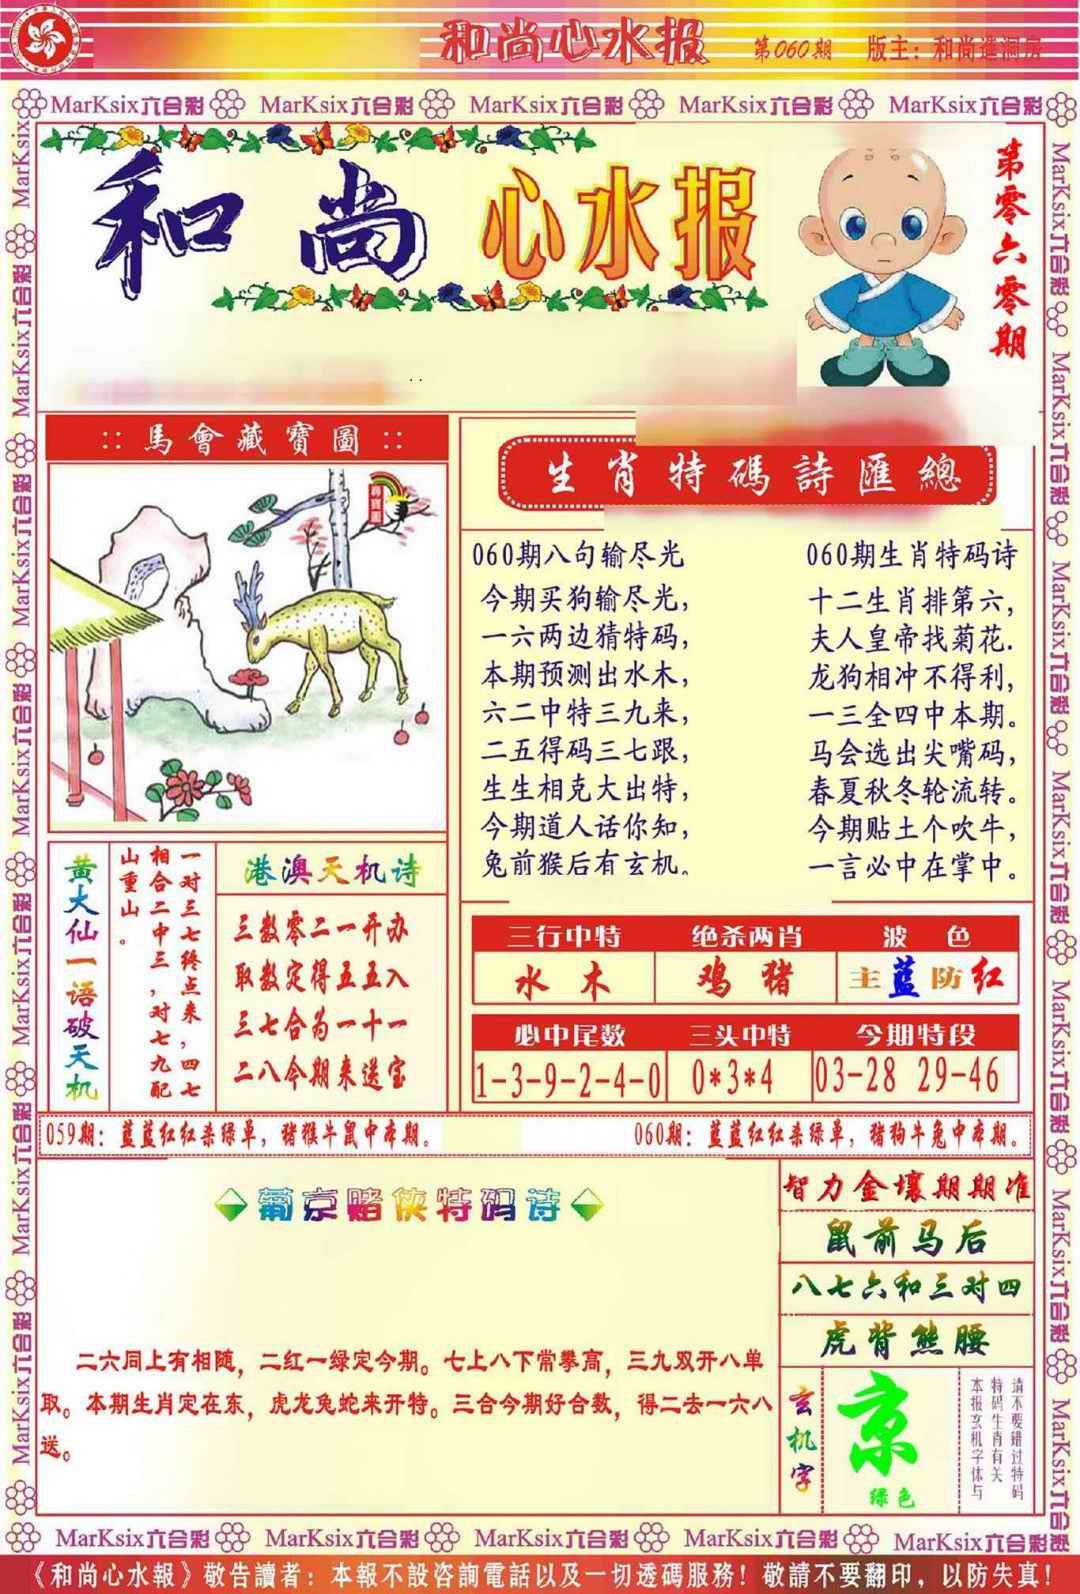 和尚心水报 第060期 版主：和尚進洞房
MarKsix六合彩 MarKsix六合彩 MarKsix六合彩 MarKsix六合彩 MarKsix六合彩
和尚心水报
第零六零期
::馬會藏寶圖::
尋寶圖
生肖特碼詩匯總
060期八句输尽光
今期买狗输尽光，
一六两边猜特码，
本期预测出水木，
六二中特三九来，
二五得码三七跟，
生生相克大出特，
今期道人话你知，
兔前猴后有玄机。
060期生肖特码诗
十二生肖排第六，
夫人皇帝找菊花.
龙狗相冲不得利，
一三全四中本期。
马会选出尖嘴码，
春夏秋冬轮流转。
今期贴土个吹牛，
一言必中在掌中。
黄大仙一语破天机
一对三七终点来，四七
相合二中三，对七九配
山重山。
港澳天机诗
三数零二一开办
取数定得五五入
三七合为一十一
二八今期来送宝
三行中特 绝杀两肖 波色
水木 鸡猪 主蓝防红
必中尾数 三头中特 今期特段
1-3-9-2-4-0 0*3*4 03-28 29-46
059期：蓝蓝红红杀绿单，猪猴牛鼠中本期。 060期：蓝蓝红红杀绿单，猪狗牛兔中本期。
葡京赌侠特码诗
二六同上有相随，二红一绿定今期。七上八下常攀高，三九双开八单
取。本期生肖定在东，虎龙兔蛇来开特。三合今期好合数，得二去一六八
送。
智力金壤期期准
鼠前马后
八七六和三对四
虎背熊腰
玄机字
京
绿色
请不要错过特码
特码生肖有关
本报玄机字体与
MarKsix六合彩 MarKsix六合彩 MarKsix六合彩 MarKsix六合彩 MarKsix六合彩
《和尚心水報》敬告讀者：本報不設咨詢電話以及一切透碼服務！敬請不要翻印，以防失真！